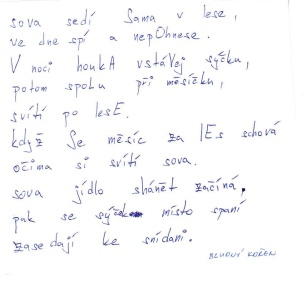 sova sedí Sama v lese,
ve dne spí a nepOhnese.
V noci houkA vstáVej sýčku,
potom spolu při měsíčku,
svítí po lesE.
když Se měsíc za lEs schová
očima si svítí sova.
sova jídlo shánět začíná,
pak se sýčekem místo spaní
zasedají ke snídani.